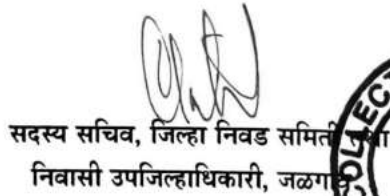 सदस्य सचिव, जिल्हा निवड समिती
निवासी उपजिल्हाधिकारी,
COLLEC